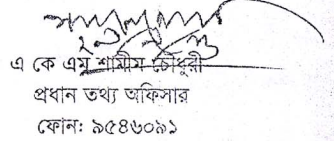 এ কে এম শামীম চৌধুরী
প্রধান তথ্য অফিসার
ফোন: ৯৫৪৬০৯১